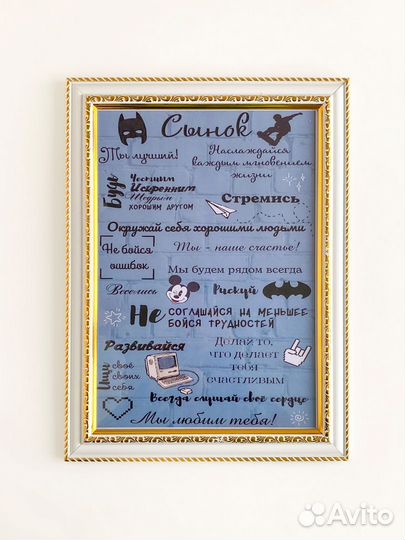 Сынок
Ты лучший!
Наслаждайся
каждым мгновением
жизни
Будь
Честным
Искренним
Щедрым
хорошим другом
Стремись
Окружай себя хорошими людьми
Не бойся
ошибок
Ты - наше счастье!
Мы будем рядом всегда
Веселись
Рискуй
Не
соглашайся на меньшее
бойся трудностей
Развивайся
Делай то,
что делает
тебя
счастливым
Ищи
своё
своих
себя
Всегда слушай своё сердце
Мы любим тебя!
Avito